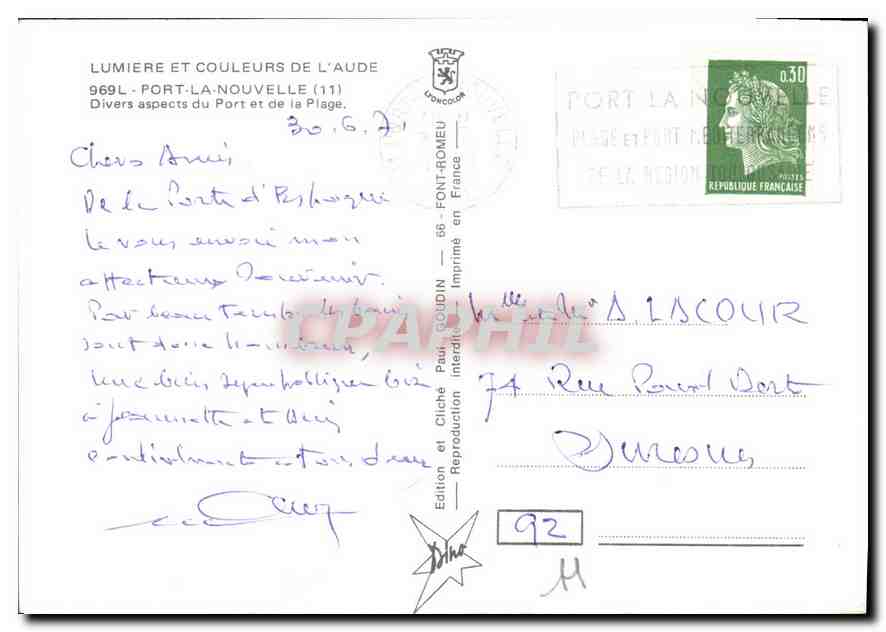 LUMIERE ET COULEURS DE L'AUDE
969L - PORT-LA-NOUVELLE (11)
Divers aspects du Port et de la Plage.
30.6.71
Chers Amis
De la Porte d'
Je vous envoie mon
affectueux Souvenir.
Par beau temps les bains
sont donc nombreux,
à et
cordialement à tous deux
LYONCOLOR
Edition et Cliché Paul GOUDIN — 66 - FONT-ROMEU
— Reproduction interdite — Imprimé en France —
Dino
PORT LA NOUVELLE
PLAGE ET PORT MEDITERRANEENS
DE LA REGION TOULOUSAINE
0,30
POSTES
REPUBLIQUE FRANÇAISE
A. LACOUR
74 Rue
Suresnes
92
CPAPHIL